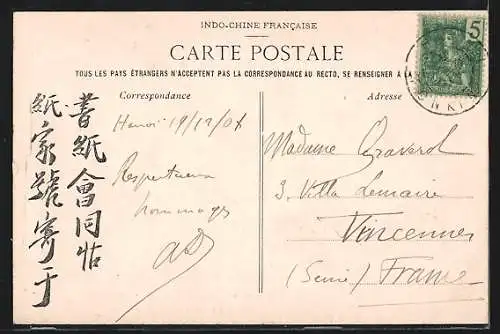 INDO-CHINE FRANÇAISE
CARTE POSTALE
TOUS LES PAYS ÉTRANGERS N'ACCEPTENT PAS LA CORRESPONDANCE AU RECTO, SE RENSEIGNER A LA
Correspondance
Adresse
5
Hanoi 19/12/07
Respectueux
hommages
Madame Gravard
3, Villa Lemaire
Vincennes
(Seine) France
書紙會同帖
紙家號寄于